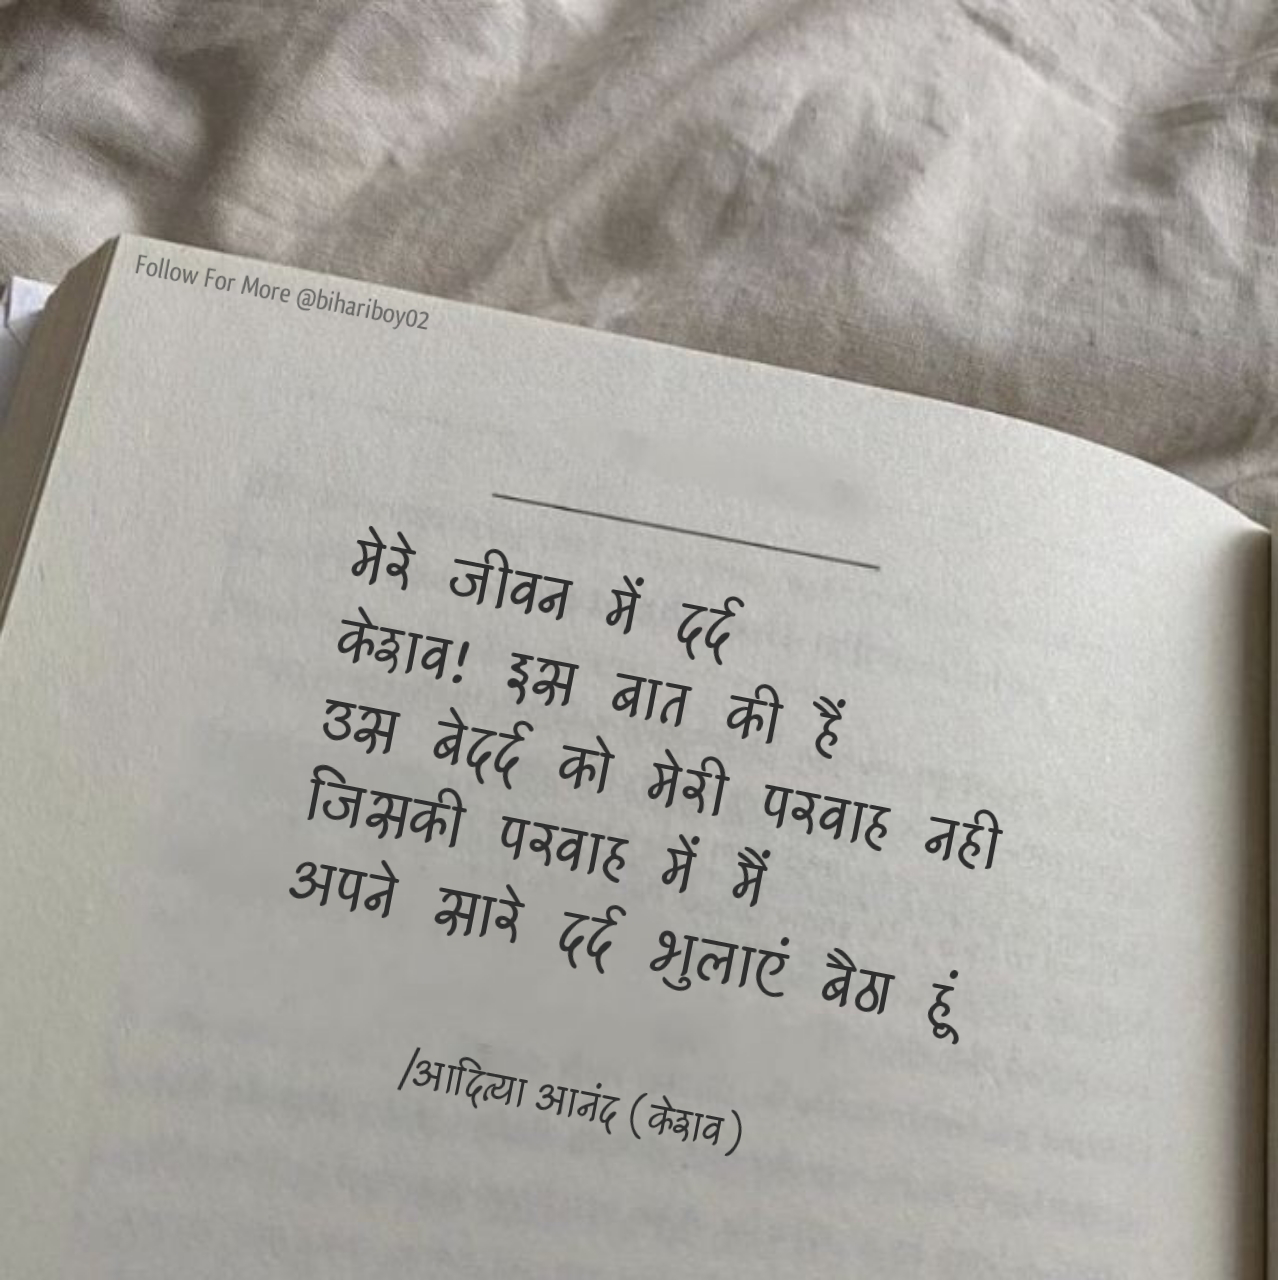 Follow For More @bihariboy02
मेरे जीवन में दर्द
केशव! इस बात की हैं
उस बेदर्द को मेरी परवाह नही
जिसकी परवाह में मैं
अपने सारे दर्द भुलाएं बैठा हूं
/आदित्या आनंद (केशव)